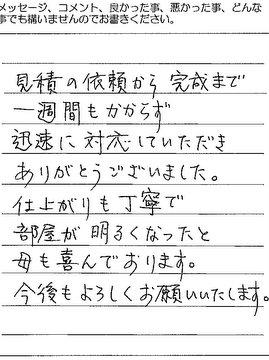 メッセージ、コメント、良かった事、悪かった事、どんな
事でも構いませんのでお書きください。
見積の依頼から完成まで
一週間もかからず
迅速に対応していただき
ありがとうございました。
仕上がりも丁寧で
部屋が明るくなったと
母も喜んでおります。
今後もよろしくお願いいたします。